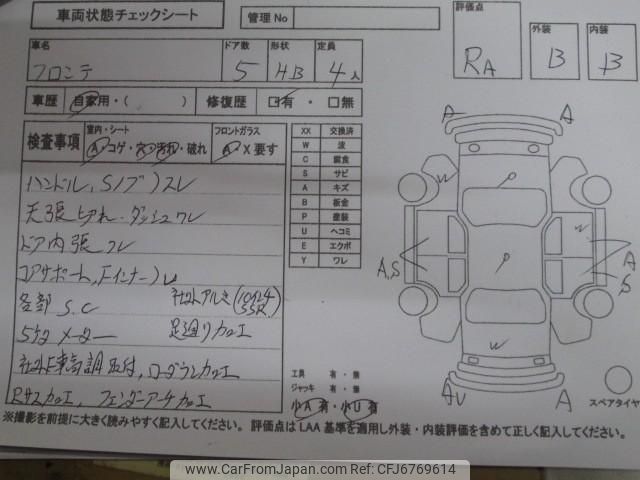 車両状態チェックシート
管理No
評価点
RA
外装
B
内装
B
車名
フロンテ
ドア数
5
形状
HB
定員
4人
車歴
自家用・( )
修復歴
☑有・□無
検査事項
室内・シート
Ⓐコゲ・穴・汚れ・破れ
フロントガラス
A X要す
ハンドル, Sノブ)スレ
天張切れ・ダッシュワレ
ドア内張ワレ
コアサポート, Fインナー)
各部 S.C
社外アルミ(10インチ SSR)
5ケタメーター
足廻り加工
社外車高調取付, ローダウン加工
Rサス加工, フェンダーアーチ加工
XX 交換済
W 波
C 腐食
S サビ
A キズ
B 板金
P 塗装
U ヘコミ
E エクボ
Y ワレ
工具 有・無
ジャッキ 有・無
小A有・小U有
A
A
W
P
W
A,S
P
A
S
W
AU
A
スペアタイヤ
※撮影を前提に大きく読みやすく記入してください。評価点はLAA基準を適用し外装・内装評価を含めて正しく記入してください。
www.CarFromJapan.com | © CarFromJapan.com | ID: CFJ6769614